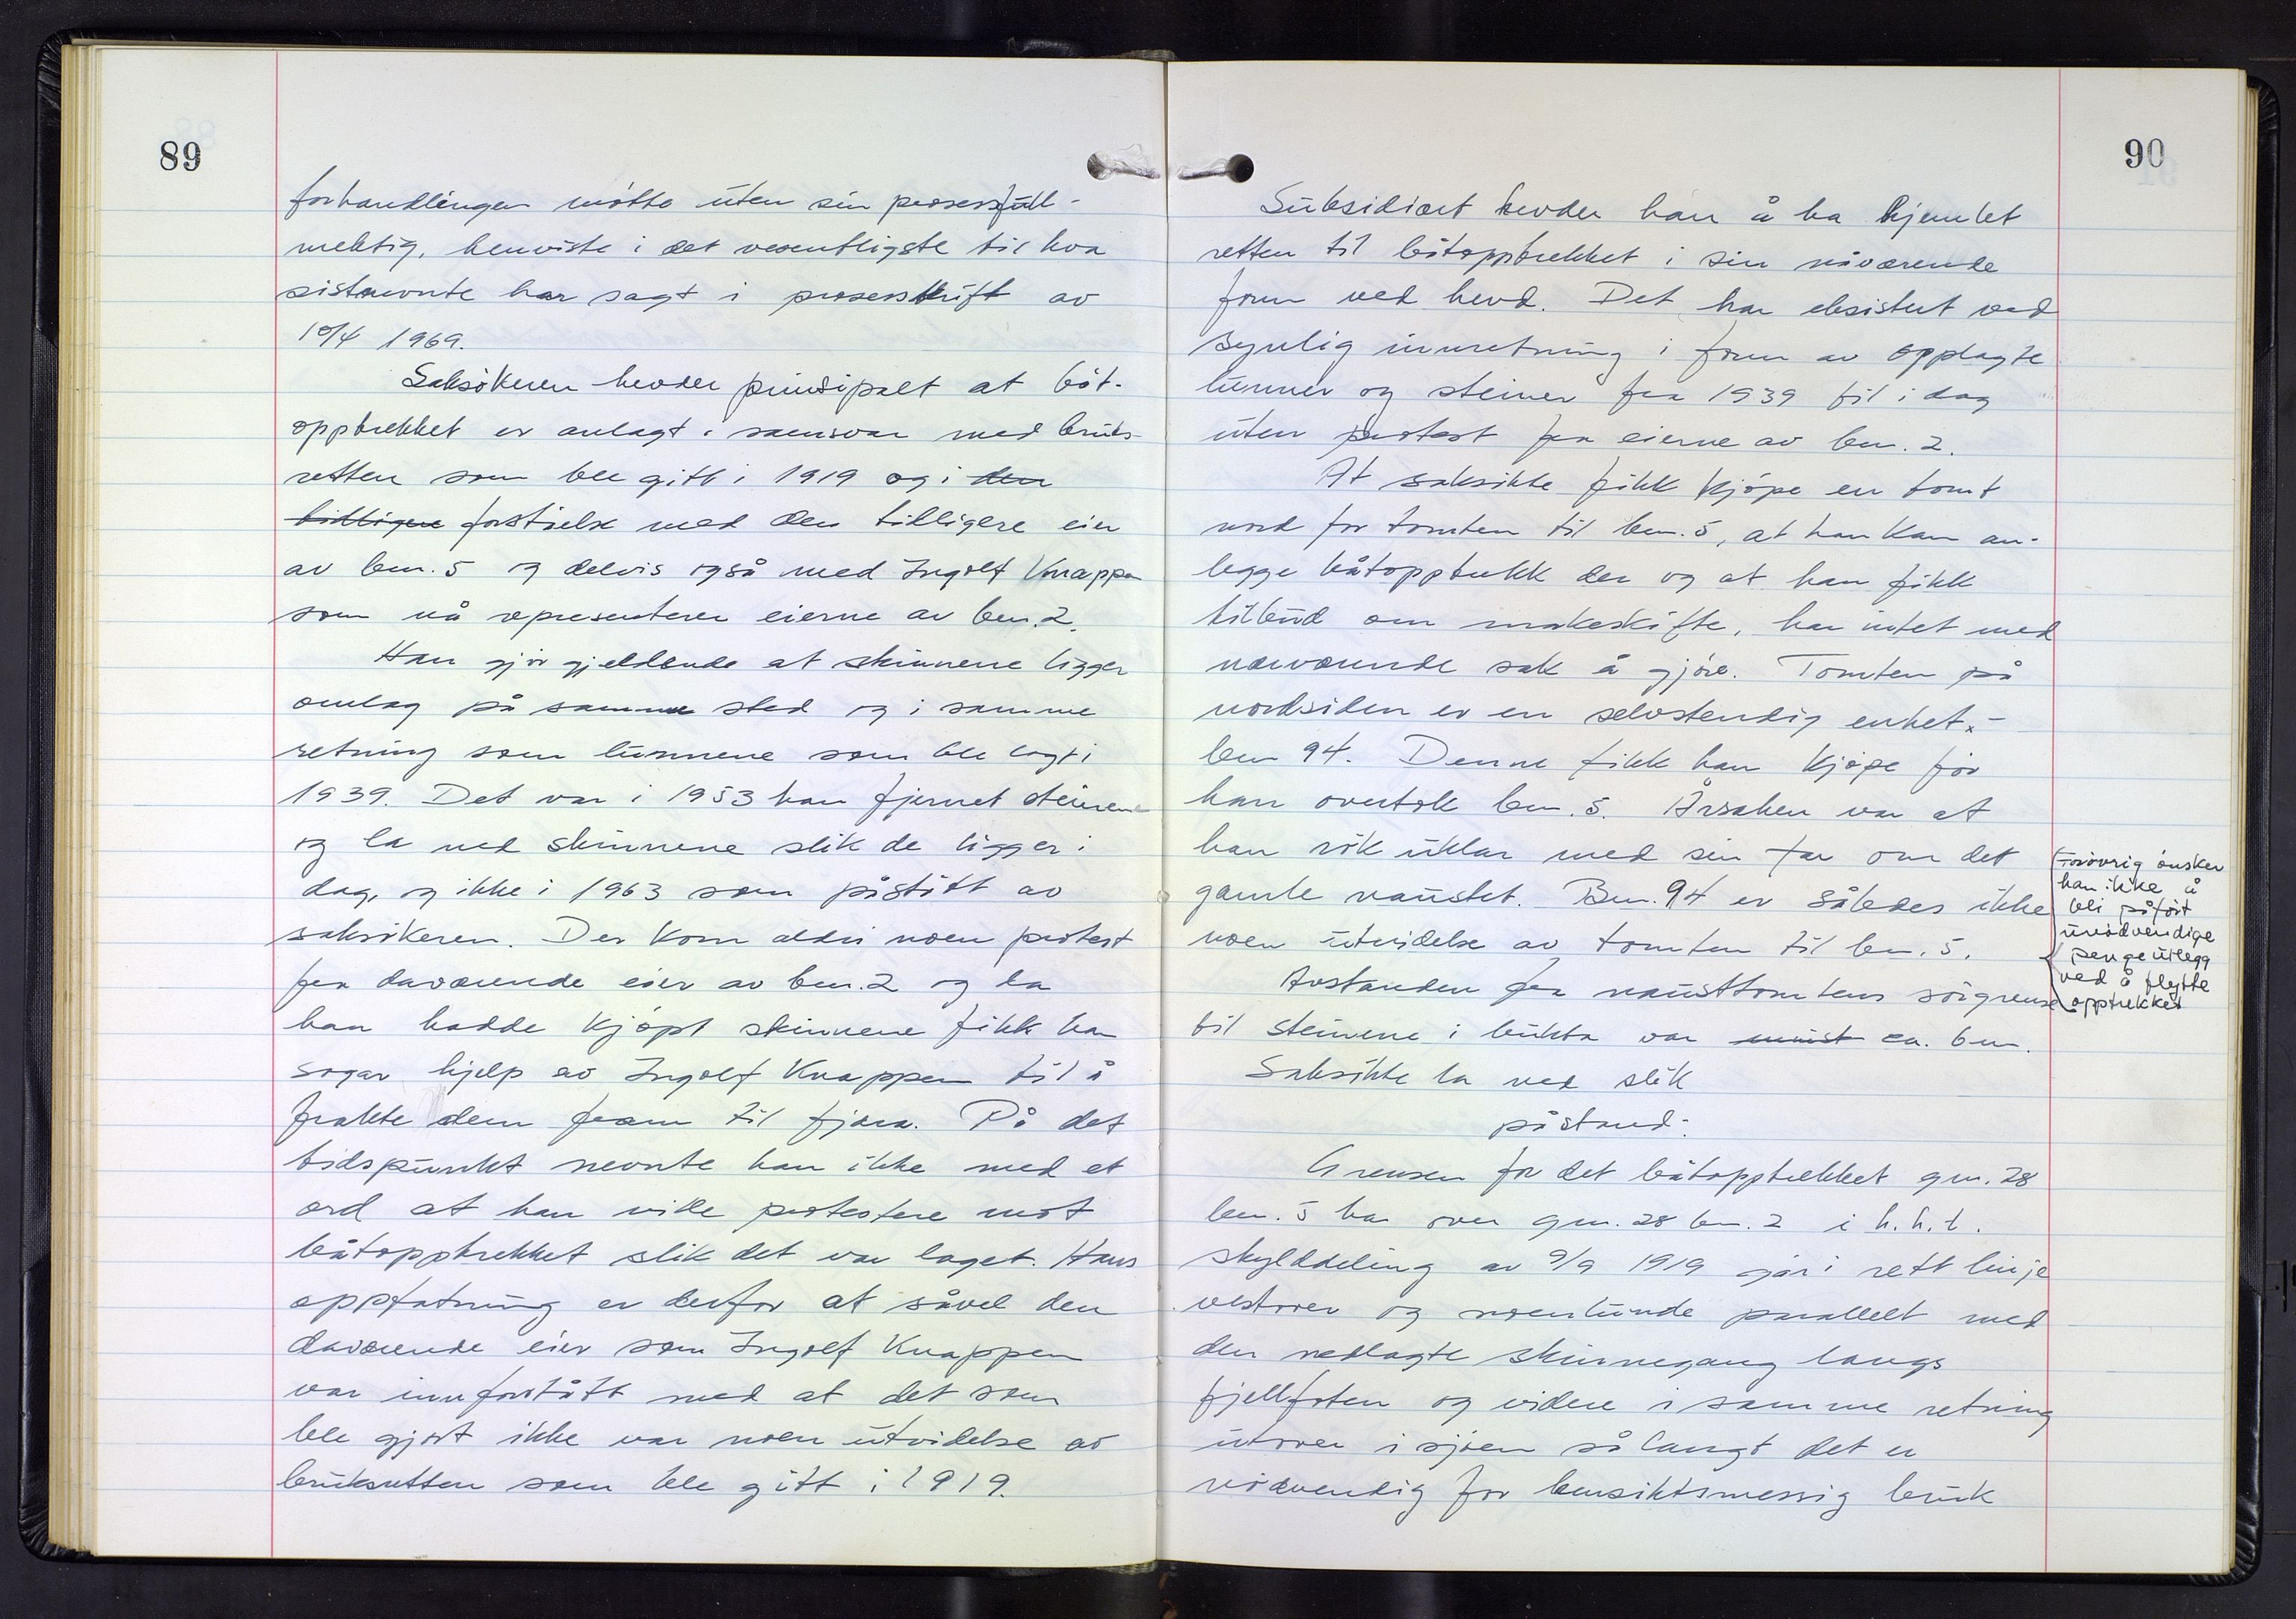 89
forhandlingen møtte uten sin prosessfull-
mektig, henviste i det vesentligste til hva
sistnevnte har sagt i prosesskrift av
10/4 1969.
Saksøkeren hevder prinsipalt at båt-
opptrekket er anlagt i samsvar med bruks-
retten som ble gitt i 1919 og i den
tidligere forståelse med den tidligere eier
av bnr. 5 og delvis også med Ingolf Knappen
som nå representerer eierne av bnr. 2.
Han gjør gjeldende at skinnene ligger
omlag på samme sted og i samme
retning som lunnene som ble lagt i
1939. Det var i 1953 han fjernet steinene
og la ned skinnene slik de ligger i
dag, og ikke i 1963 som påstått av
saksøkeren. Der kom aldri noen protest
fra daværende eier av bnr. 2 og da
han hadde kjøpt skinnene fikk han
sogar hjelp av Ingolf Knappen til å
frakte dem fram til fjæra. På det
tidspunkt nevnte han ikke med et
ord at han ville protestere mot
båtopptrekket slik det var laget. Hans
oppfatning er derfor at såvel den
daværende eier som Ingolf Knappen
var innforstått med at det som
ble gjort ikke var noen utvidelse av
bruksretten som ble gitt i 1919.
90
Subsidiært hevder han å ha hjemlet
retten til båtopptrekket i sin nåværende
form ved hevd. Det har eksistert ved
synlig innretning i form av opplagte
lunner og steiner fra 1939 til i dag
uten protest fra eierne av bnr. 2.
At saksøkte fikk kjøpe en tomt
nord for tomten til bnr. 5, at han kan an-
legge båtopptrekk der og at han fikk
tilbud om makeskifte, har intet med
nærværende sak å gjøre. Tomten på
nordsiden er en selvstendig enhet -
bnr 94. Denne fikk han kjøpe før
han overtok bnr. 5. Årsaken var at
han røk uklar med sin far om det
gamle naustet. Bnr. 94 er således ikke
noen utvidelse av tomten til bnr. 5.
Forøvrig ønsker
han ikke å
bli påført
unødvendige
pengeutlegg
ved å flytte
opptrekket
Avstanden fra nausttomtens sørgrense
til steinene i bukta var minst ca. 6 m.
Saksøkte la ned slik
påstand:
Grensen for det båtopptrekket gnr. 28
bnr. 5 har over gnr. 28 bnr. 2 i h.h.t.
skylddeling av 9/9 1919 går i rett linje
vestover og noenlunde parallelt med
den nedlagte skinnegang langs
fjellfoten og videre i samme retning
utover i sjøen så langt det er
nødvendig for hensiktsmessig bruk